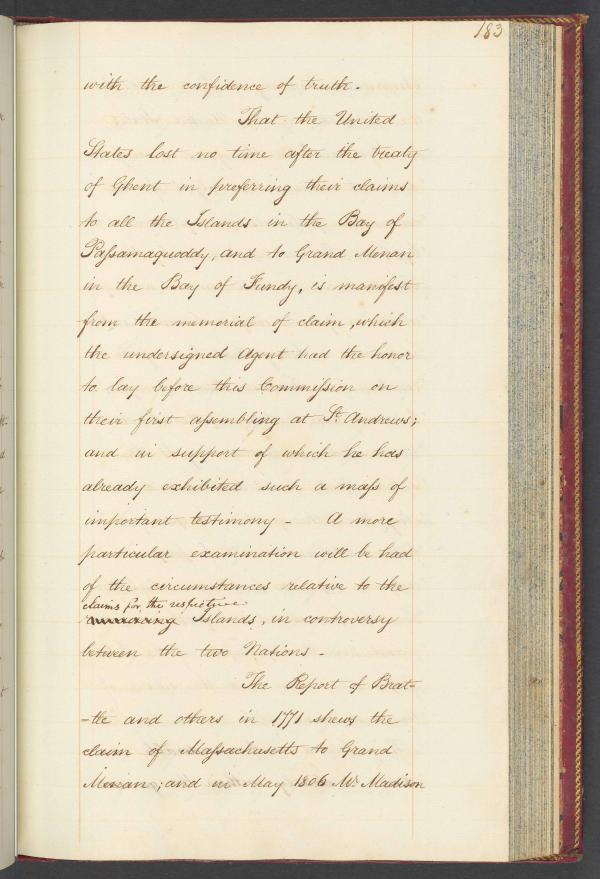 183
with the confidence of truth.
That the United
States lost no time after the treaty
of Ghent in preferring their claims
to all the Islands in the Bay of
Paſsamaquoddy, and to Grand Menan
in the Bay of Fundy, is manifest
from the memorial of claim, which
the undersigned Agent had the honor
to lay before this Commiſsion on
their first aſsembling at St. Andrews;
and in support of which he has
already exhibited such a maſs of
important testimony - A more
particular examination will be had
of the circumstances relative to the
claims for the respective
Islands, in controversy
between the two Nations -
The Report of Brat-
-tle and others in 1771 shews the
claim of Maſsachusetts to Grand
Menan; and in May 1806 Mr. Madison